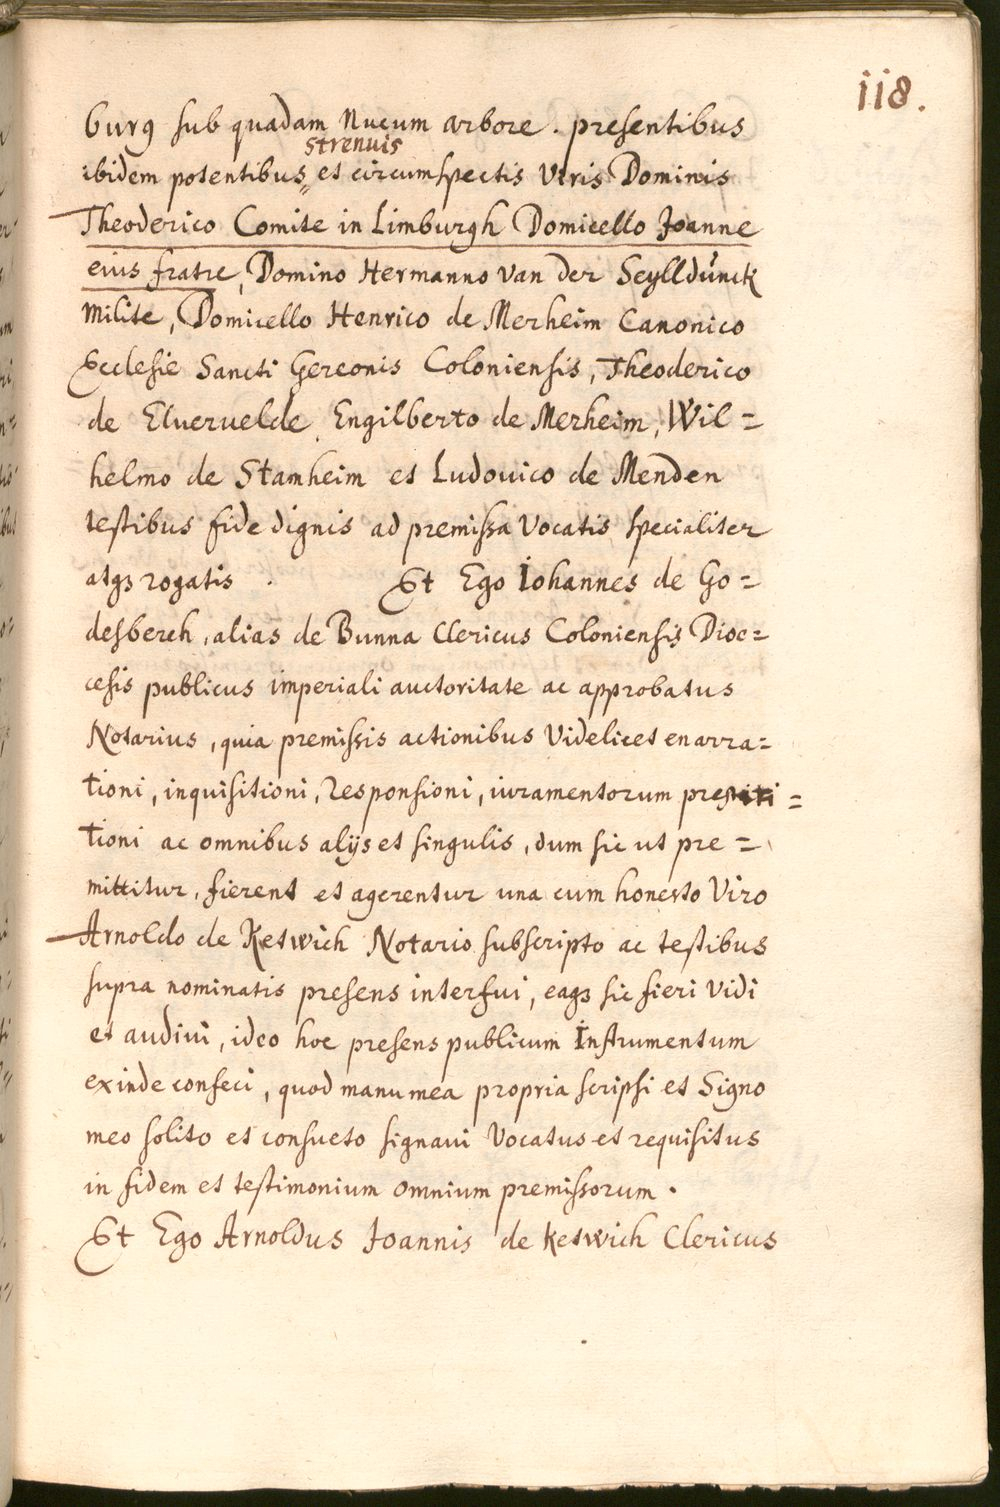 118.
burg sub quadam Nucum arbore. presentibus
strenuis
ibidem potentibus„ et circumspectis Viris Dominis
Theoderico Comite in Limburgh Domicello Joanne
eius fratre, Domino Hermanno van der Seylldünck
Milite, Domicello Henrico de Merheim Canonico
Ecclesie Sancti Gereonis Coloniensis, Theoderico
de Elueruelde, Engilberto de Merheim, Wil=
helmo de Stamheim et Ludouico de Menden
testibus fide dignis ad premissa Vocatis specialiter
atqȝ rogatis. Et Ego Iohannes de Go=
desberch, alias de Bunna Clericus Coloniensis Dioc=
cesis publicus imperiali auctoritate ac approbatus
Notarius, quia premissis actionibus Videlicet enarra=
tioni, inquisitioni, Responsioni, iuramentorum prestiti=
tioni ac omnibus alijs et singulis, dum sic ut pre=
mittitur, fierent et agerentur una cum honesto Viro
Arnoldo de Ketwich Notario subscripto ac testibus
supra nominatis presens interfui, eaqȝ sic fieri vidi
et audiui, ideo hoc presens publicum Instrumentum
exinde confeci, quod manu mea propria scripsi et Signo
meo solito et consueto signaui Vocatus et requisitus
in fidem et testimonium omnium premissorum.
Et Ego Arnoldus Joannis de Ketwich Clericus